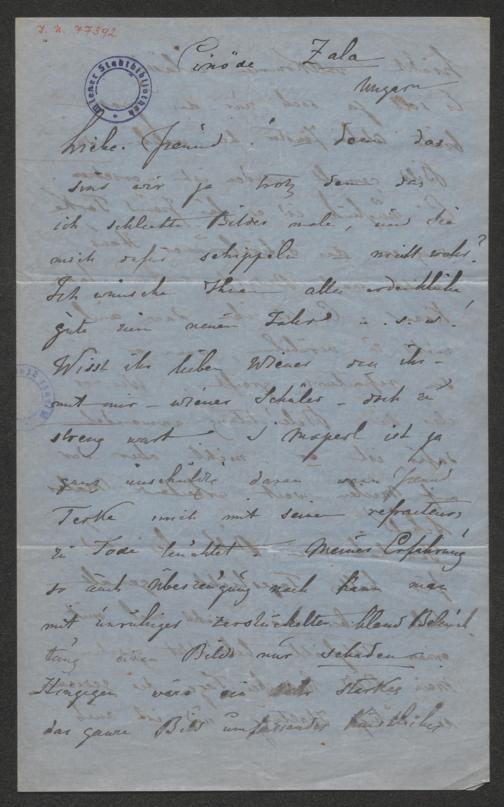 J. N. 77392
Wiener Stadtbibliothek
Einöde Zala
Ungarn
Liebe Freund! denn das
sind wir ja trotz dem das
ich schlechte Bilder male, und Sie
mich dafür schippeln nicht wahr?
Ich wünsche Ihnen alles erdenkliche
gute zum neuen Jahre u. s. w!
Wisst ihr lieben Wiener das ihr
mit mir – wiener Schüler – doch zu
streng wart
ist ja
ganz unschuldig daran wenn Freund
mich mit seinen refracteurs
zu Tode leuchtet – Meiner Erfahrung
so auch Überzeugung nach kann man
mit unruhiger zerstückelter Beleuch
tung einen Bilde nur schaden –
Hingegen wäre ein sehr starkes
das ganze Bild umfassendes künstliches